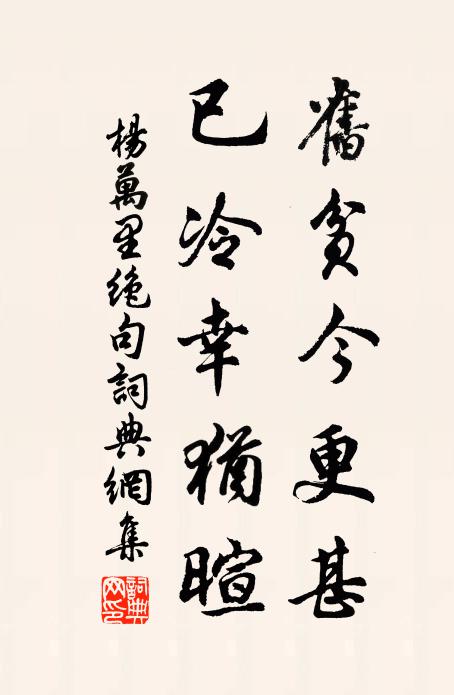 舊貧今更甚
已冷幸猶暄
楊萬里絶句詞典網集
詞典網印